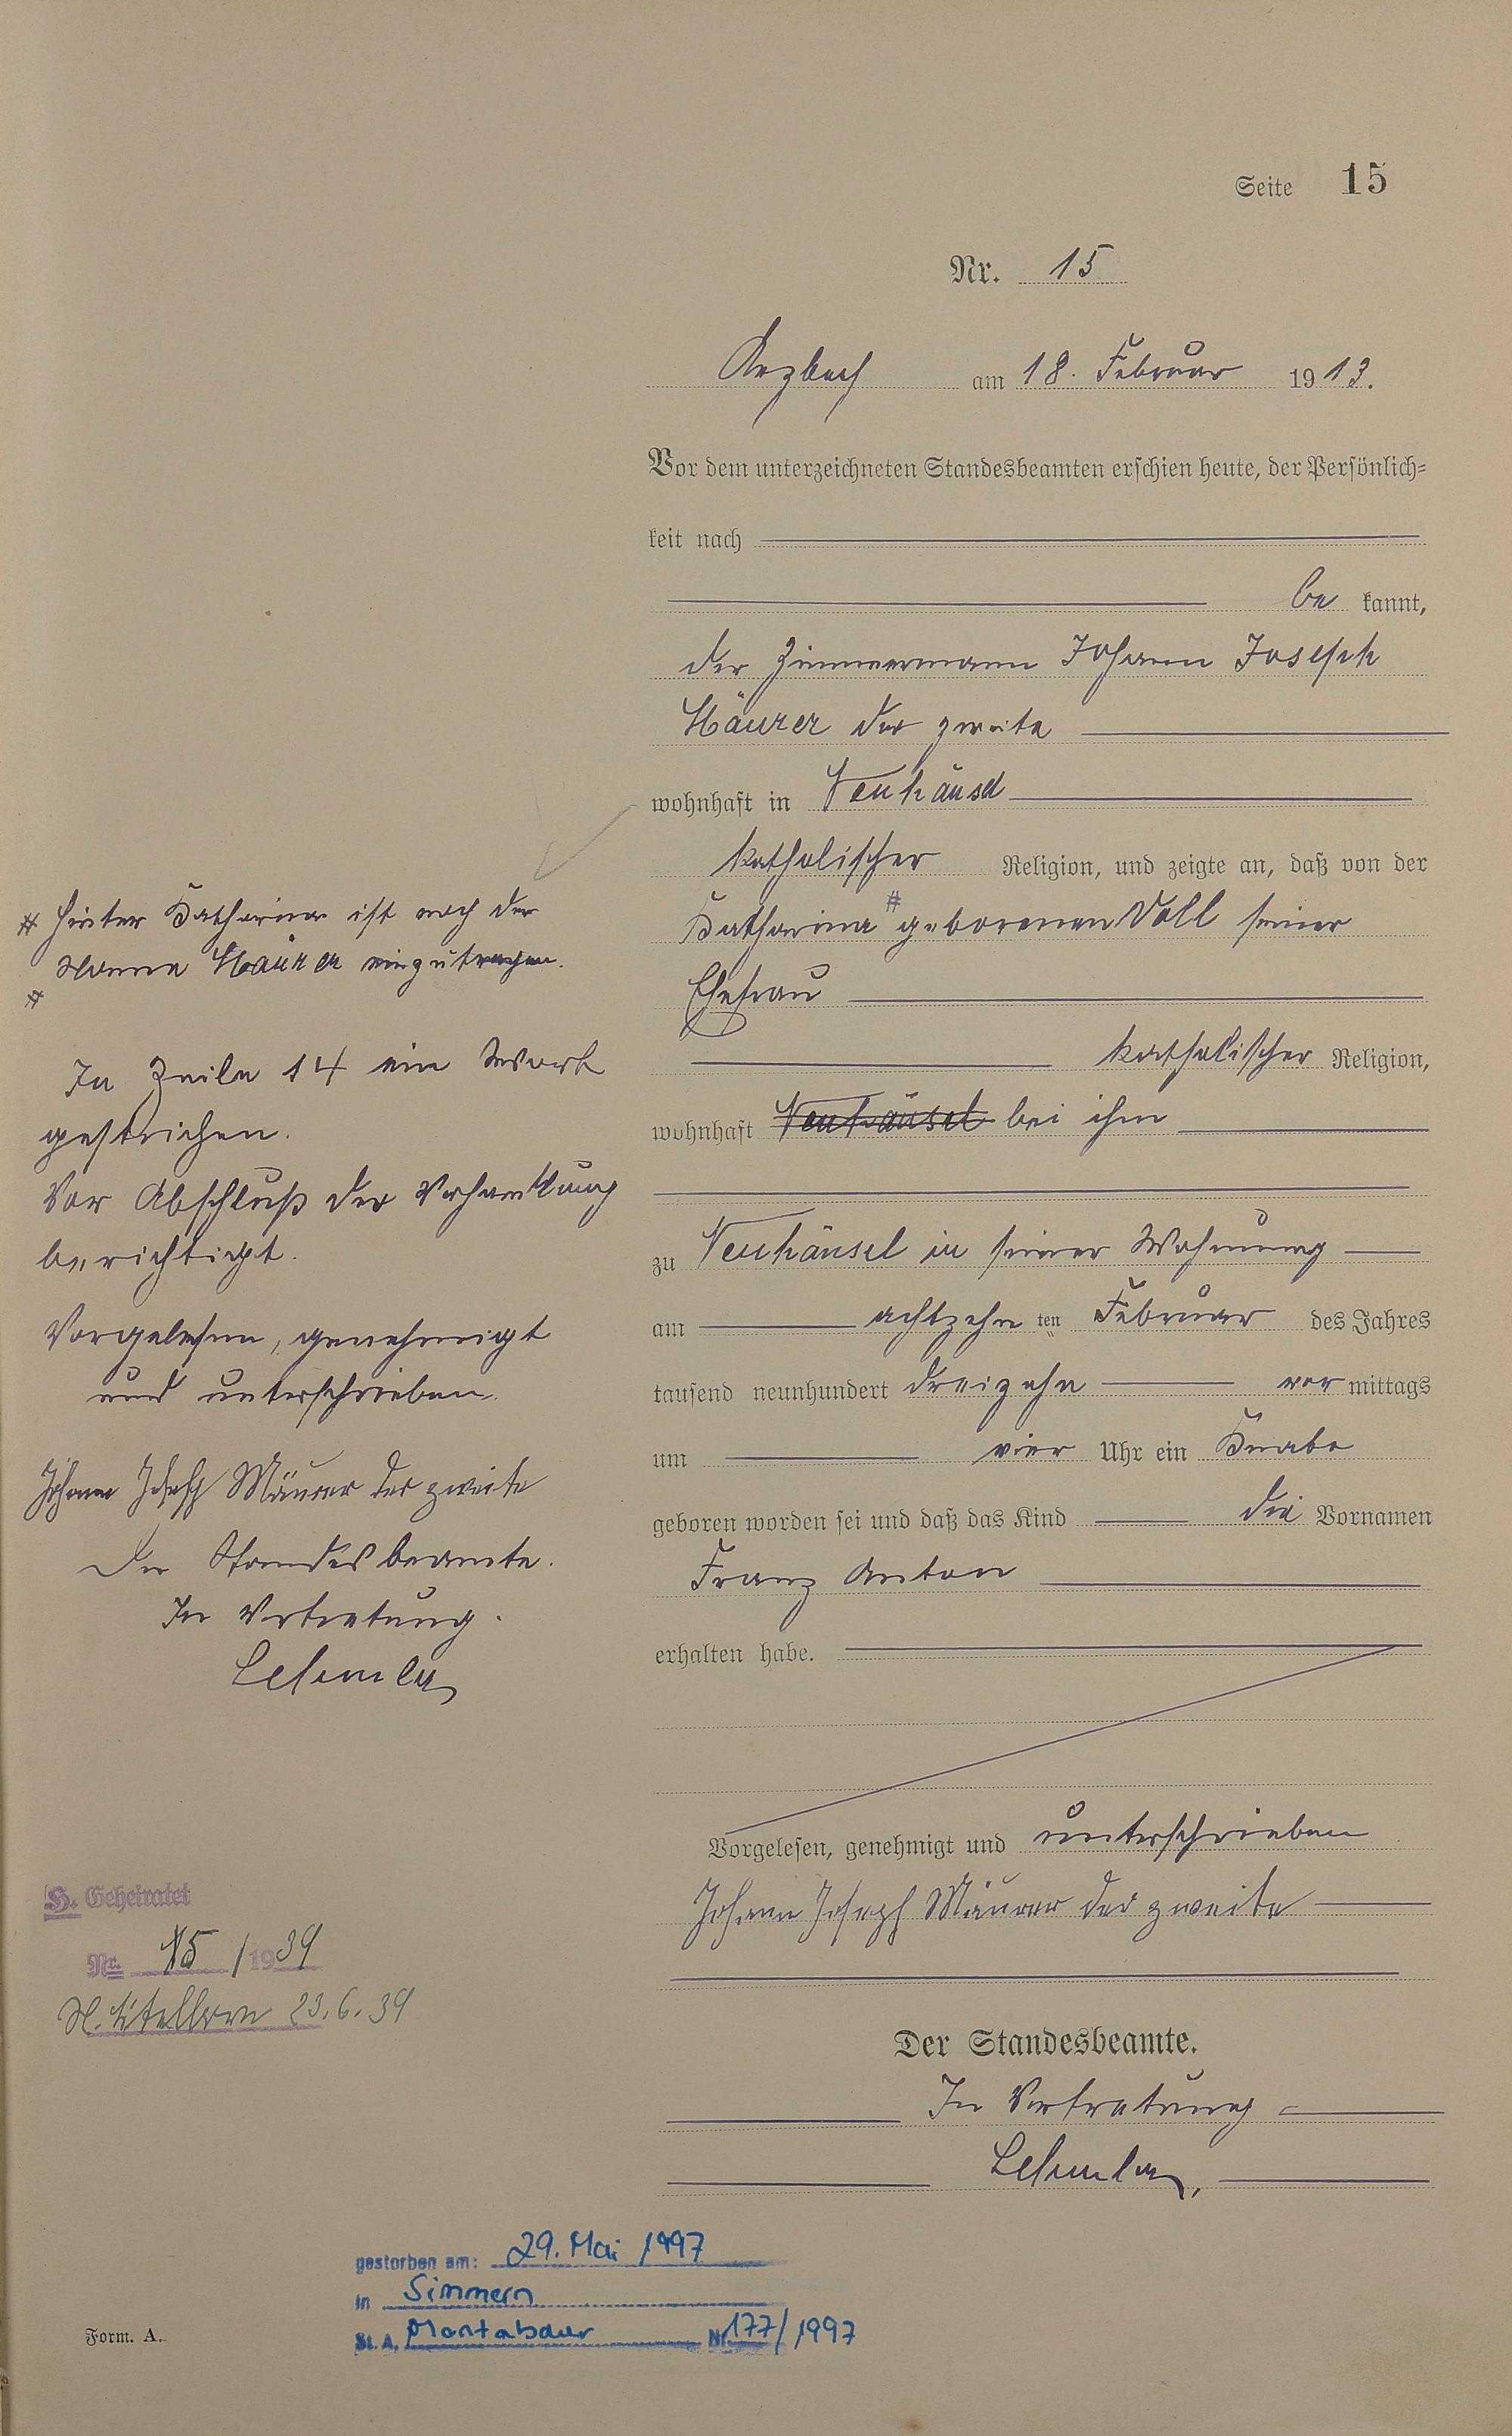 Seite 15
Nr. 15
Arzbach am 18. Februar 1913.
Vor dem unterzeichneten Standesbeamten erschien heute, der Persönlich-
keit nach
be kannt,
der Zimmermann Johann Joseph
Mäurer der zweite
wohnhaft in Neuhäusel
katholischer Religion, und zeigte an, daß von der
Katharina # geborenen Voll seiner
Ehefrau
katholischer Religion,
wohnhaft Neuhäusel bei ihm
zu Neuhäusel in seiner Wohnung
am achtzehn ten Februar des Jahres
tausend neunhundert dreizehn vor mittags
um vier Uhr ein Knabe
geboren worden sei und daß das Kind die Vornamen
Franz Anton
erhalten habe.
Vorgelesen, genehmigt und unterschrieben
Johann Joseph Mäurer der zweite
Der Standesbeamte.
In Vertretung
# hinter Katharina ist noch der
Name Mäurer einzutragen.
#
In Zeile 14 ein Wort
gestrichen.
Vor Abschluß der Verhandlung
berichtigt.
Vorgelesen, genehmigt
und unterschrieben.
Johann Joseph Mäurer der zweite
Der Standesbeamte.
In Vertretung.
H. Geheiratet
Nr. 15/1939
23.6.39
gestorben am: 29. Mai 1997
in Simmern
St. A. Montabaur Nr. 177/1997
Form. A.